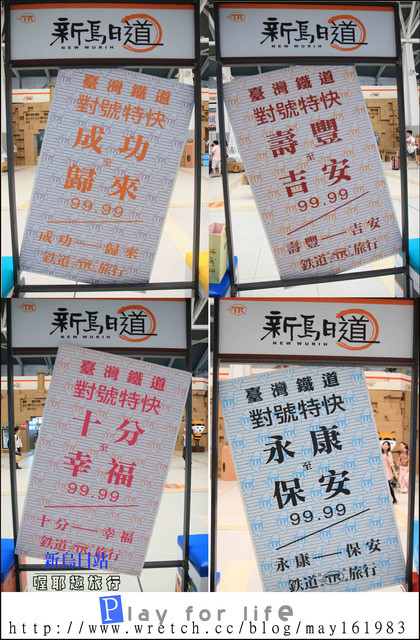 TR 新烏日道
NEW WURIH
臺灣鐵道
對號特快
成功
至
歸來
99.99
成功——歸來
鉄道 TR 旅行
TR 新烏日道
NEW WURIH
臺灣鐵道
對號特快
壽豐
至
吉安
99.99
壽豐——吉安
鉄道 TR 旅行
TR 新烏日道
NEW WURIH
臺灣鐵道
對號特快
十分
至
幸福
99.99
十分——幸福
鉄道 TR 旅行
新烏日站
喔耶趣旅行
TR 新烏日道
NEW WURIH
臺灣鐵道
對號特快
永康
至
保安
99.99
永康——保安
鉄道 TR 旅行
Play for life
http://www.wretch.cc/blog/may161983